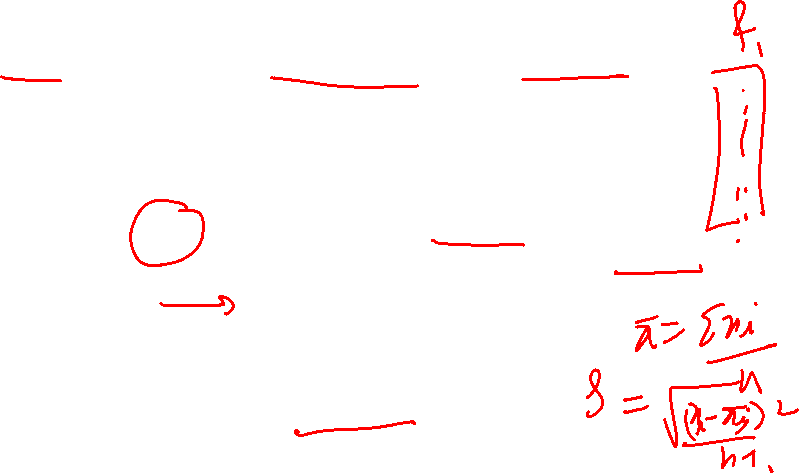 f₁
x̄ = Σxi / n
S = √((x̄ - xi)² / n-1)